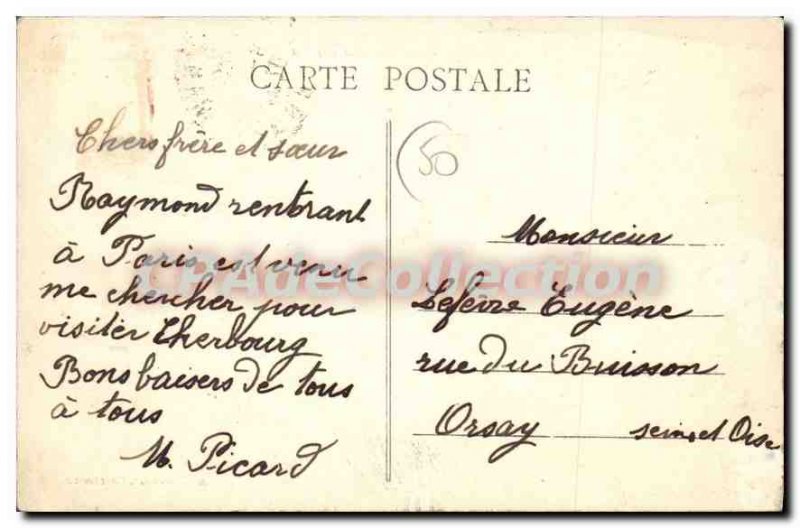 CARTE POSTALE
50
Chers frère et sœur
Raymond rentrant
à Paris est venu
me chercher pour
visiter Cherbourg
Bons baisers de tous
à tous
M. Picard
Monsieur
Lefèvre Eugène
rue du Buisson
Orsay seine et Oise
CPAdeCollection